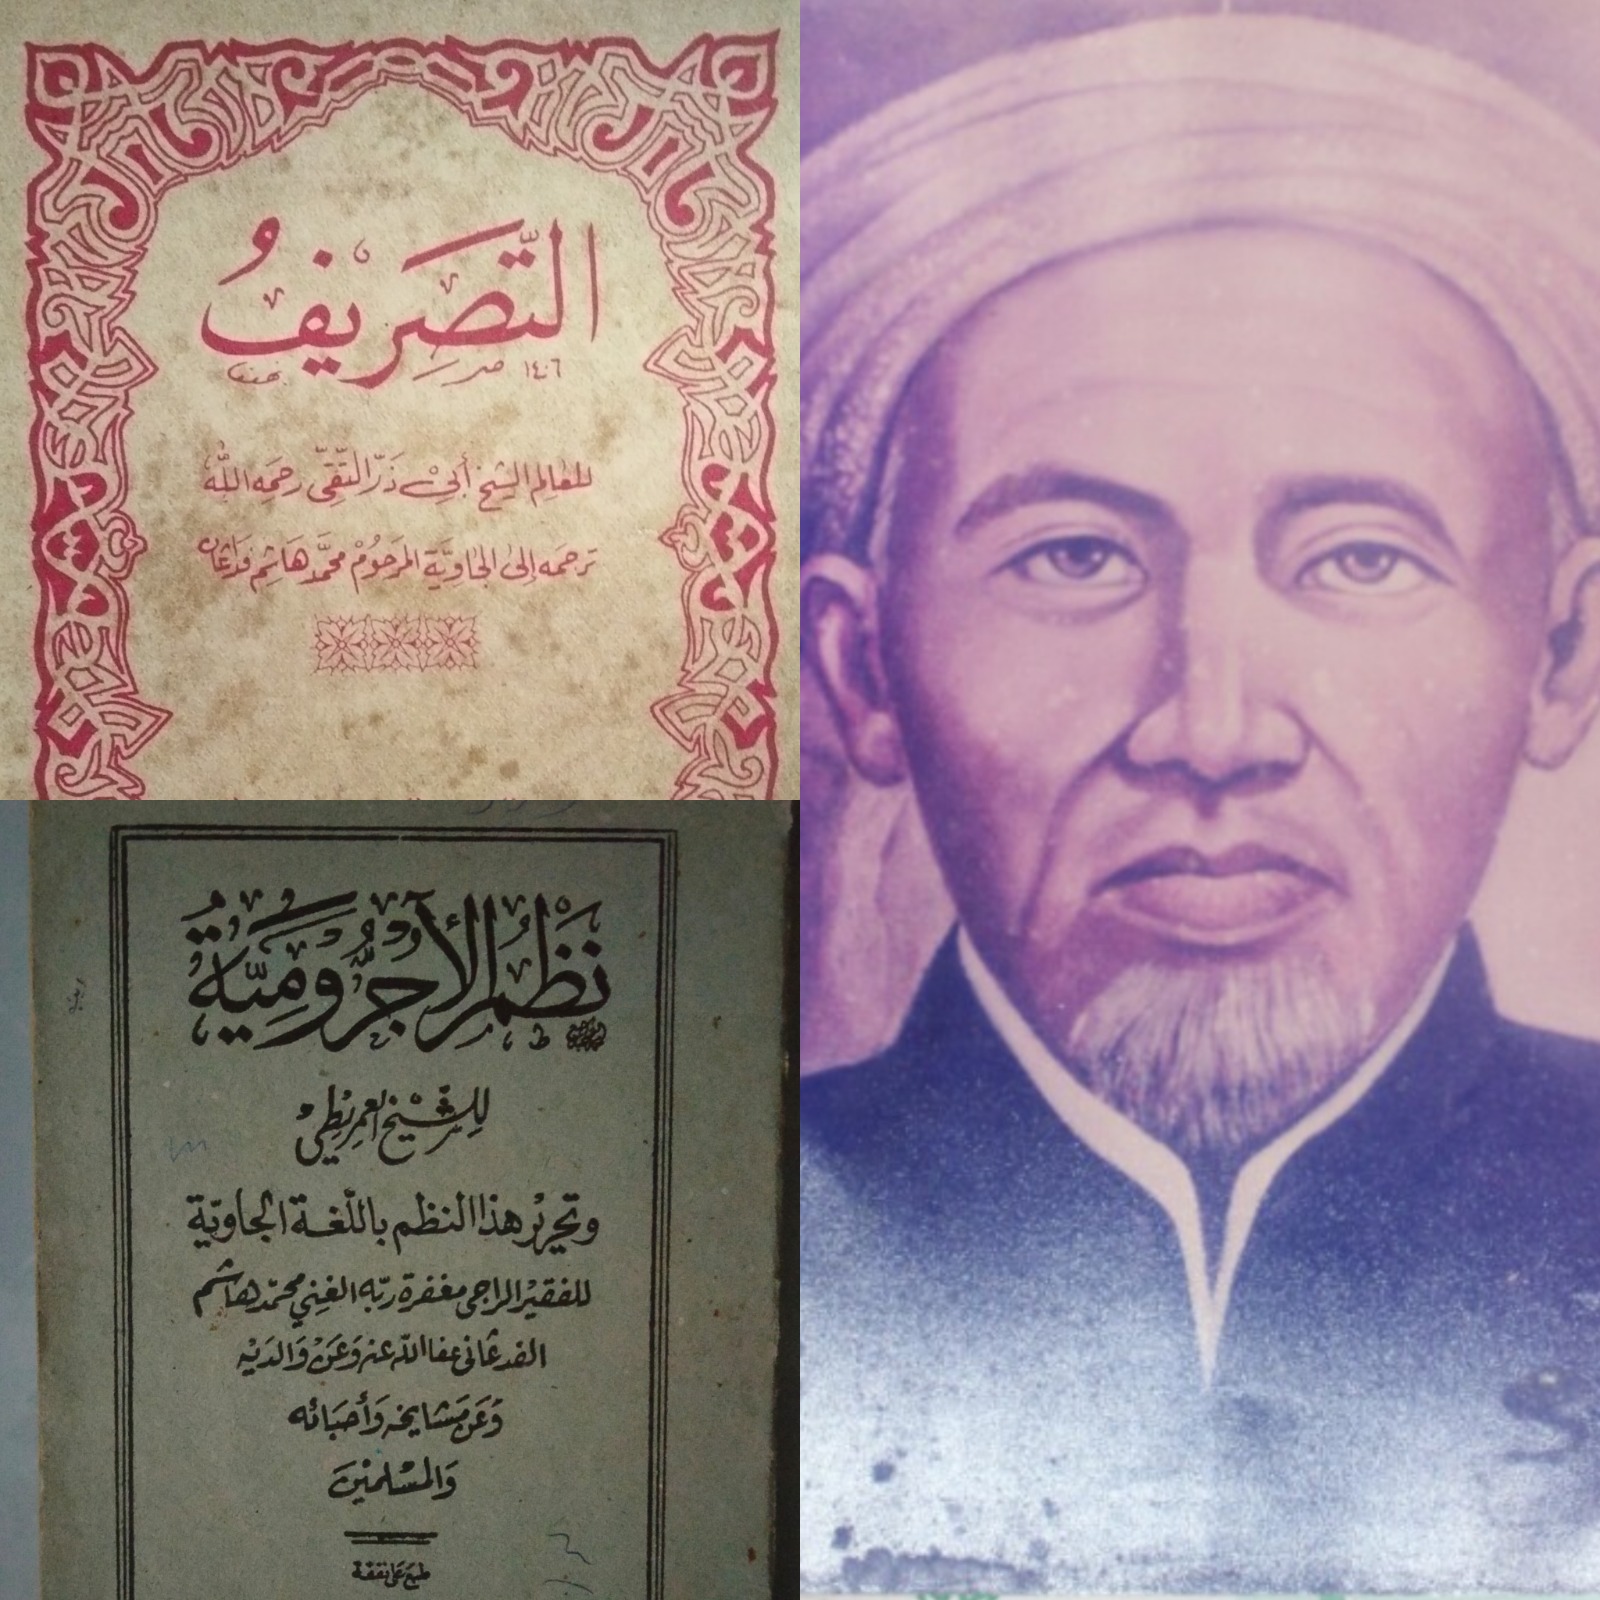 التَّصَرِيفُ
١٤٠٦
للعالم الشيخ أبي ذَرّ التّقىّ رحمه الله
ترجمه إلى الجاويّة المرحُومْ محمّد هاشم فداڠان
نَظْمُ الْأٓجُرُّومِيَّةُ
لِلشَّيْخ العمريْطِيْ
وتحريْر هذا النظم باللّغة الجاويّة
للفقيْر الراجى مغفرة ربّه الغني محمّد هاشم
الفدڠانى عفا الله عنه وَعَنْ وَالدَيْه
وَعَنْ مَشايخه وَأحبَائه
وَالمسْلميْن
طبع على نفقة